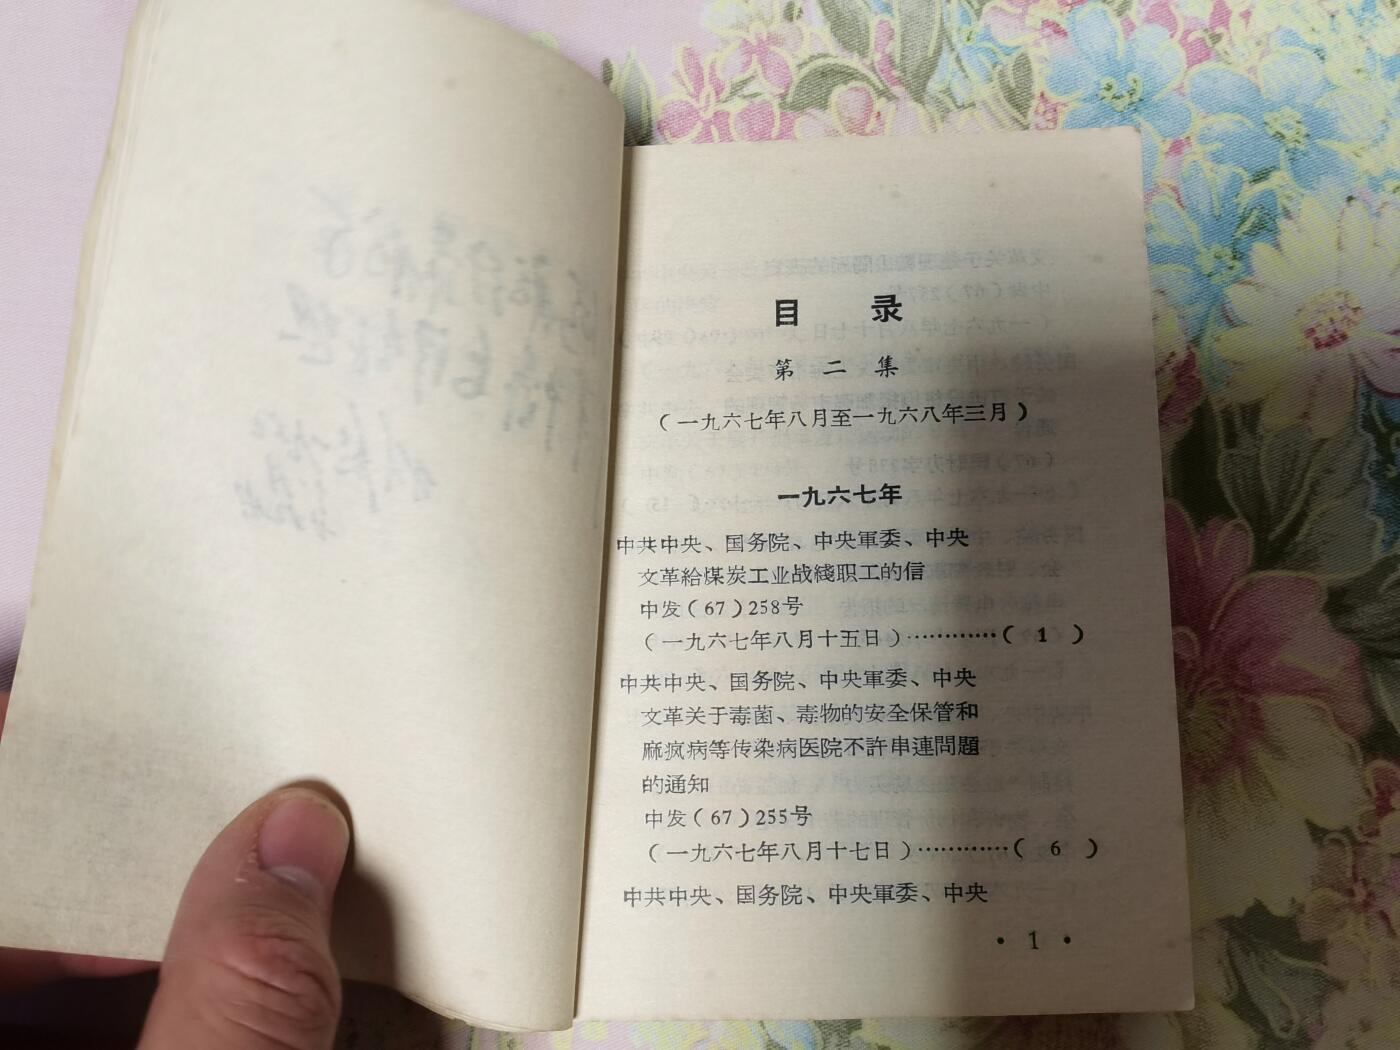 目 录
第 二 集
（一九六七年八月至一九六八年三月）
一九六七年
中共中央、国务院、中央軍委、中央
文革給煤炭工业战綫职工的信
中发（67）258号
（一九六七年八月十五日）…………（ 1 ）
中共中央、国务院、中央軍委、中央
文革关于毒菌、毒物的安全保管和
麻疯病等传染病医院不許串連問題
的通知
中发（67）255号
（一九六七年八月十七日）…………（ 6 ）
中共中央、国务院、中央軍委、中央
• 1 •